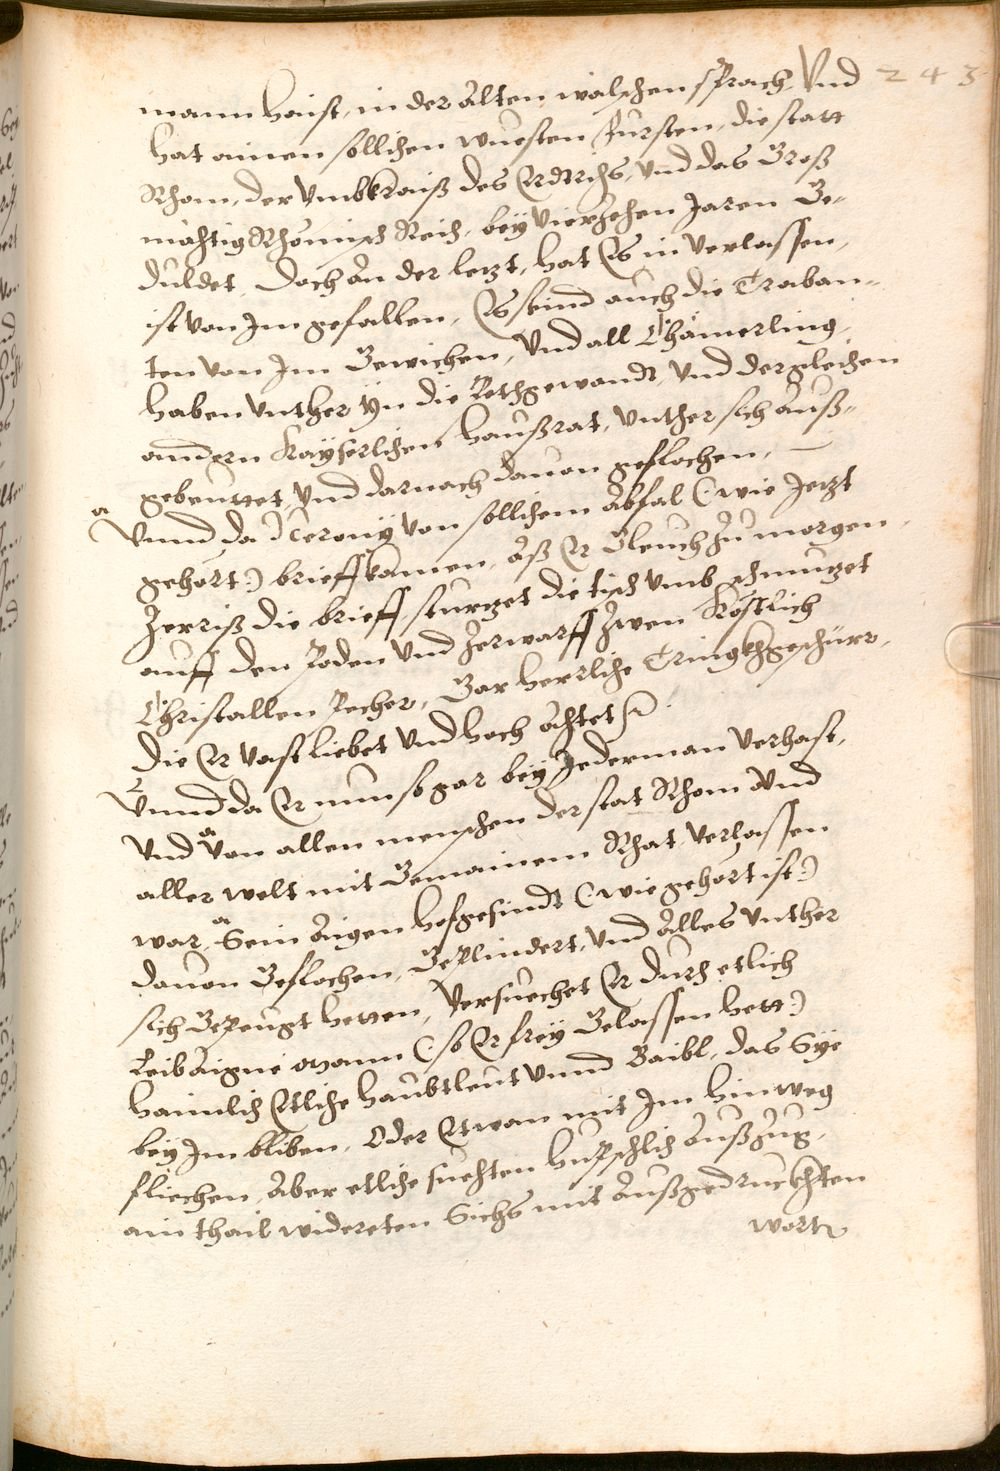 243
mann haist, in der alten wälschen sprach. Und
hat ainen sollichen wuesten Fürsten, die statt
Rhom, der Umbkraiß des Erdtrichs, Und das Groß
mächtig Rhömisch Reich, bey Vierzehen Jaren Ge-
duldet. Doch an der letzt, hat Es in Verlassen,
ist von Im gefallen, Es seind auch die Traban-
ten von Im Gewichen, Und all Chämerling,
haben Unther Yn die Pethgewandt, Und dergleichen
andern Kayserlichen haußrat, Unther sich auß-
gebeuttet, Und darnach dauon geflochen.
Unnd da Neroni Von sollichem abfal (: wie Jetzt
gehört :) brieff kamen, aß Er Gleuch zu morgen,
Zerriß die brieff sturtzet die tisch Umb schmutzet
auff den Poden Und Zerwarff Zwen Köstlich
Christallen Pecher, Gar herrliche Tringkhgeschürr,
die Er Vast liebet Und hoch achtet
Unnd da Er nun so gar bey Jederman Verhast,
Und Von allen menschen der stat Rhom Und
aller welt mit Gemainem Rhat Verlassen
war, Sein aigen hofgesindt (: wie gehört ist :)
dauon Geflochen, Geplindert, Und alles Unther
sich Gepeugt hetten, Versuechet Er durch etlich
Leibaigne mann (: so Er frey Gelassen hett :)
haimlich Etliche haubtleut Unnd Waibl, das Sye
bey Im bliben, Oder Etwan mit Im hinweg
fliechen, Aber etliche suechten hüpschlich außzug,
ain thail widereten Sichs mit außgedruckhten
worten